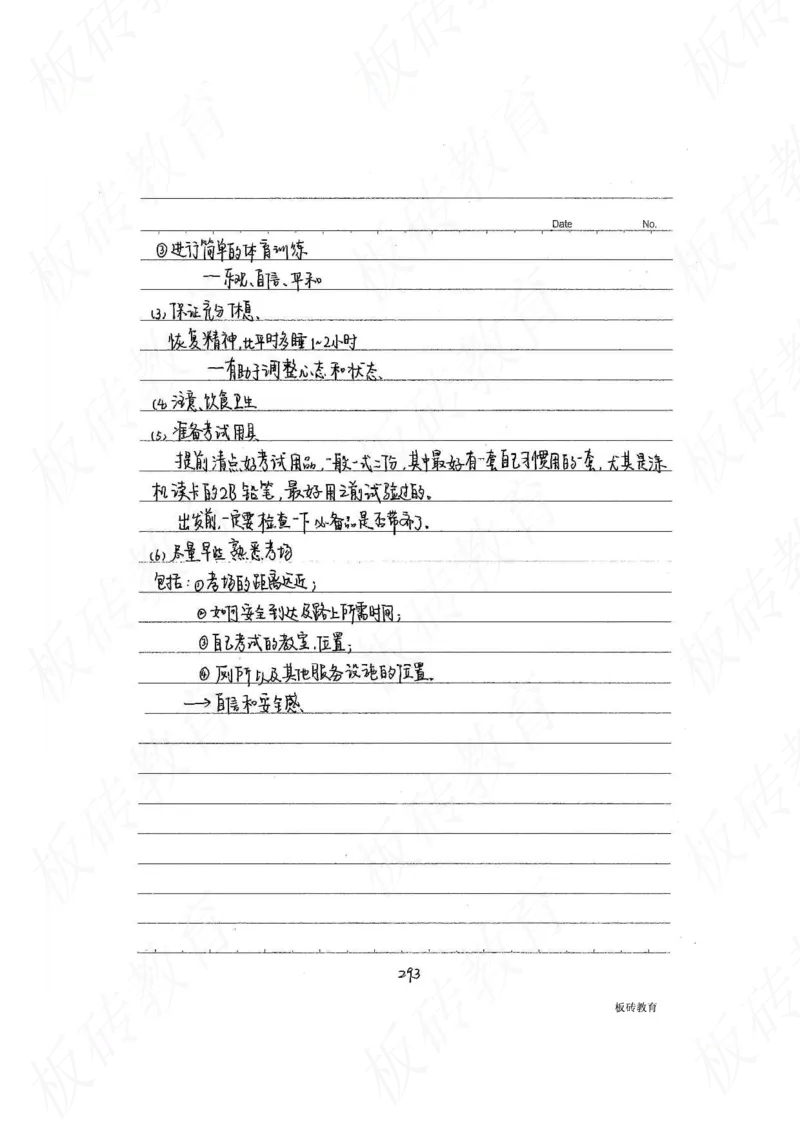 Date No.
③进行简单的体育训练
—乐观、自信、平和
(3)保证充分休息、
恢复精神,比平时多睡1~2小时
—有助于调整心态和状态、
(4)注意、饮食卫生
(5)准备考试用具
提前清点好考试用品,一般一式二份,其中最好有一套自己习惯用的一套,尤其是涂
机读卡的2B铅笔,最好用之前试验过的。
出发前,一定要检查一下必备品是否带齐了。
(6)尽量早些熟悉考场
包括:①考场的距离远近;
②如何安全到达及路上所需时间;
③自己考试的教室、位置;
④厕所以及其他服务设施的位置。
→自信和安全感、
293
板砖教育